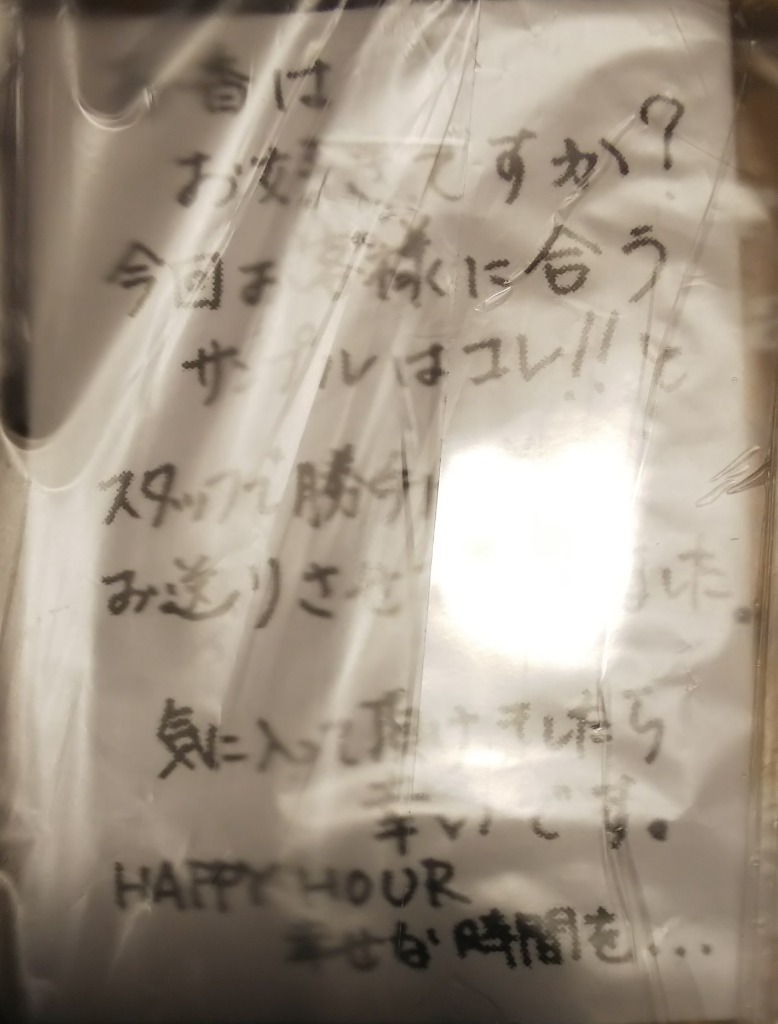 香は
お好きですか?
今回お客様に合う
サンプルはコレ!!と
スタッフで勝手
お送りさせ した。
気に入って頂けましたら
幸いです。
HAPPY HOUR
幸せな時間を...